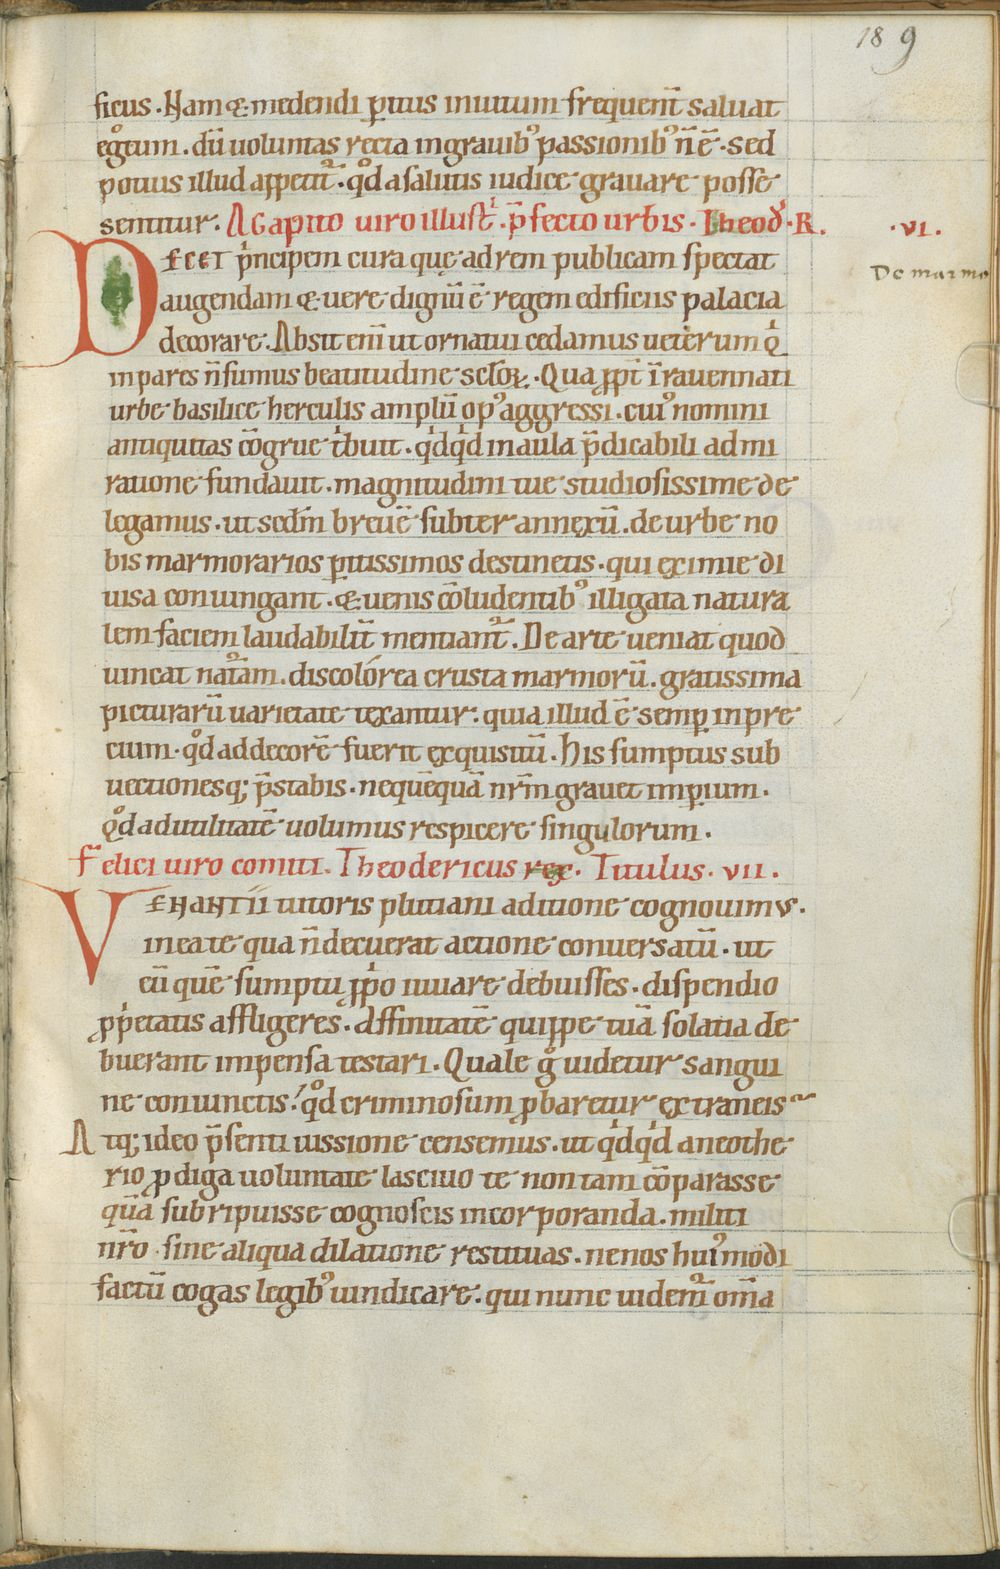 189
ficus. Nam & medendi ꝑitus inuitum frequent̄ saluat
eg̊tum. dū uoluntas recta in grauib᷒ passionib᷒ n̄ ē. sed
potius illud appetit᷑. qd̊ a salutis iudice grauare posse
sentitur. AGapito uiro illustͥ. p̄fecto urbis. Theod̛. R. .VI.
DECET pͥncipem cura quę ad rem publicam spectat
De marmo
augendam & uere dignū ē regem edificiis palacia
decorare. Absit enī ut ornatui cedamus ueterum qͥ
inpares n̄ sumus beatitudine sclōꝝ. Qua ꝓpt̄ ī rauennati
urbe basilice herculis amplū op᷒ aggressi. cui᷒ nomini
antiquitas cōgrue tͥbuit. qͥdqͥd in aula p̄dicabili admi
ratione fundauit. magnitudini tue studiosissime de
legamus. ut secd̄m breuē subter annexū. de urbe no
bis marmorarios ꝑitissimos destinetis. qui eximie di
uisa coniungant. & uenis cōludentib᷒ illigata natura
lem faciem laudabilit̄ mentiant᷑. De arte ueniat quod
uincat nat᷑am. discolórea crusta marmorū. gratissima
picturarū uarietate texantur: quia illud ē semꝑ in pre
cium. qd̊ ad decorē fuerit exquisitū. His sumptus sub
uectionesq; p̄stabis. nequēquā nr̄m grauet imꝑium.
Qd̊ ad utilitatē uolumus respicere singulorum.
Felici uiro comiti. Theodericus rex. Titulus. VII.
VENANTII tutoris plutiani aditione cognouimus.
in ea te qua n̄ decuerat actione conuersatū. ut
eū quē sumptu ꝓpͥo iuuare debuisses. dispendio
ꝓpͥetatis affligeres. Affinitatē quippe tuā solatia de
buerant impensa testari. Quale g̊ uidetur sangui
ne coniunctis. qd̊ criminosum ꝓbaretur extraneis
Atq; ideo p̄senti iussione censemus. ut qͥdqͥd a neothe
rio ꝓdiga uoluntate lasciuo te non tam cōparasse
quā subripuisse cognoscis incorporanda. militi
nr̄o sine aliqua dilatione restituas. ne nos hui᷒modi
factū cogas legib᷒ uindicare. qui nunc uidem᷑ om̄a